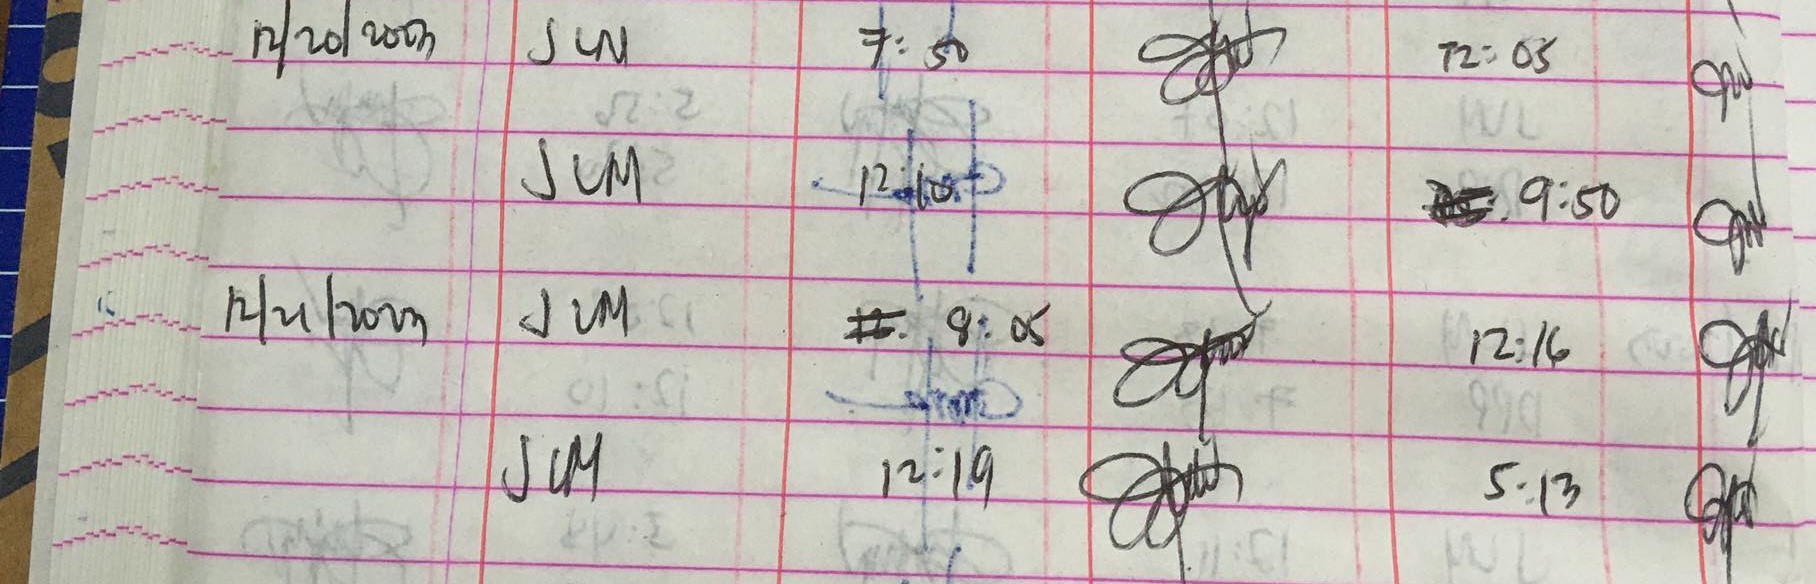 12/20/2023 JLM 7:50 12:05
JLM 12:10 9:50
12/21/2023 JLM 8:05 12:16
JLM 12:19 5:13